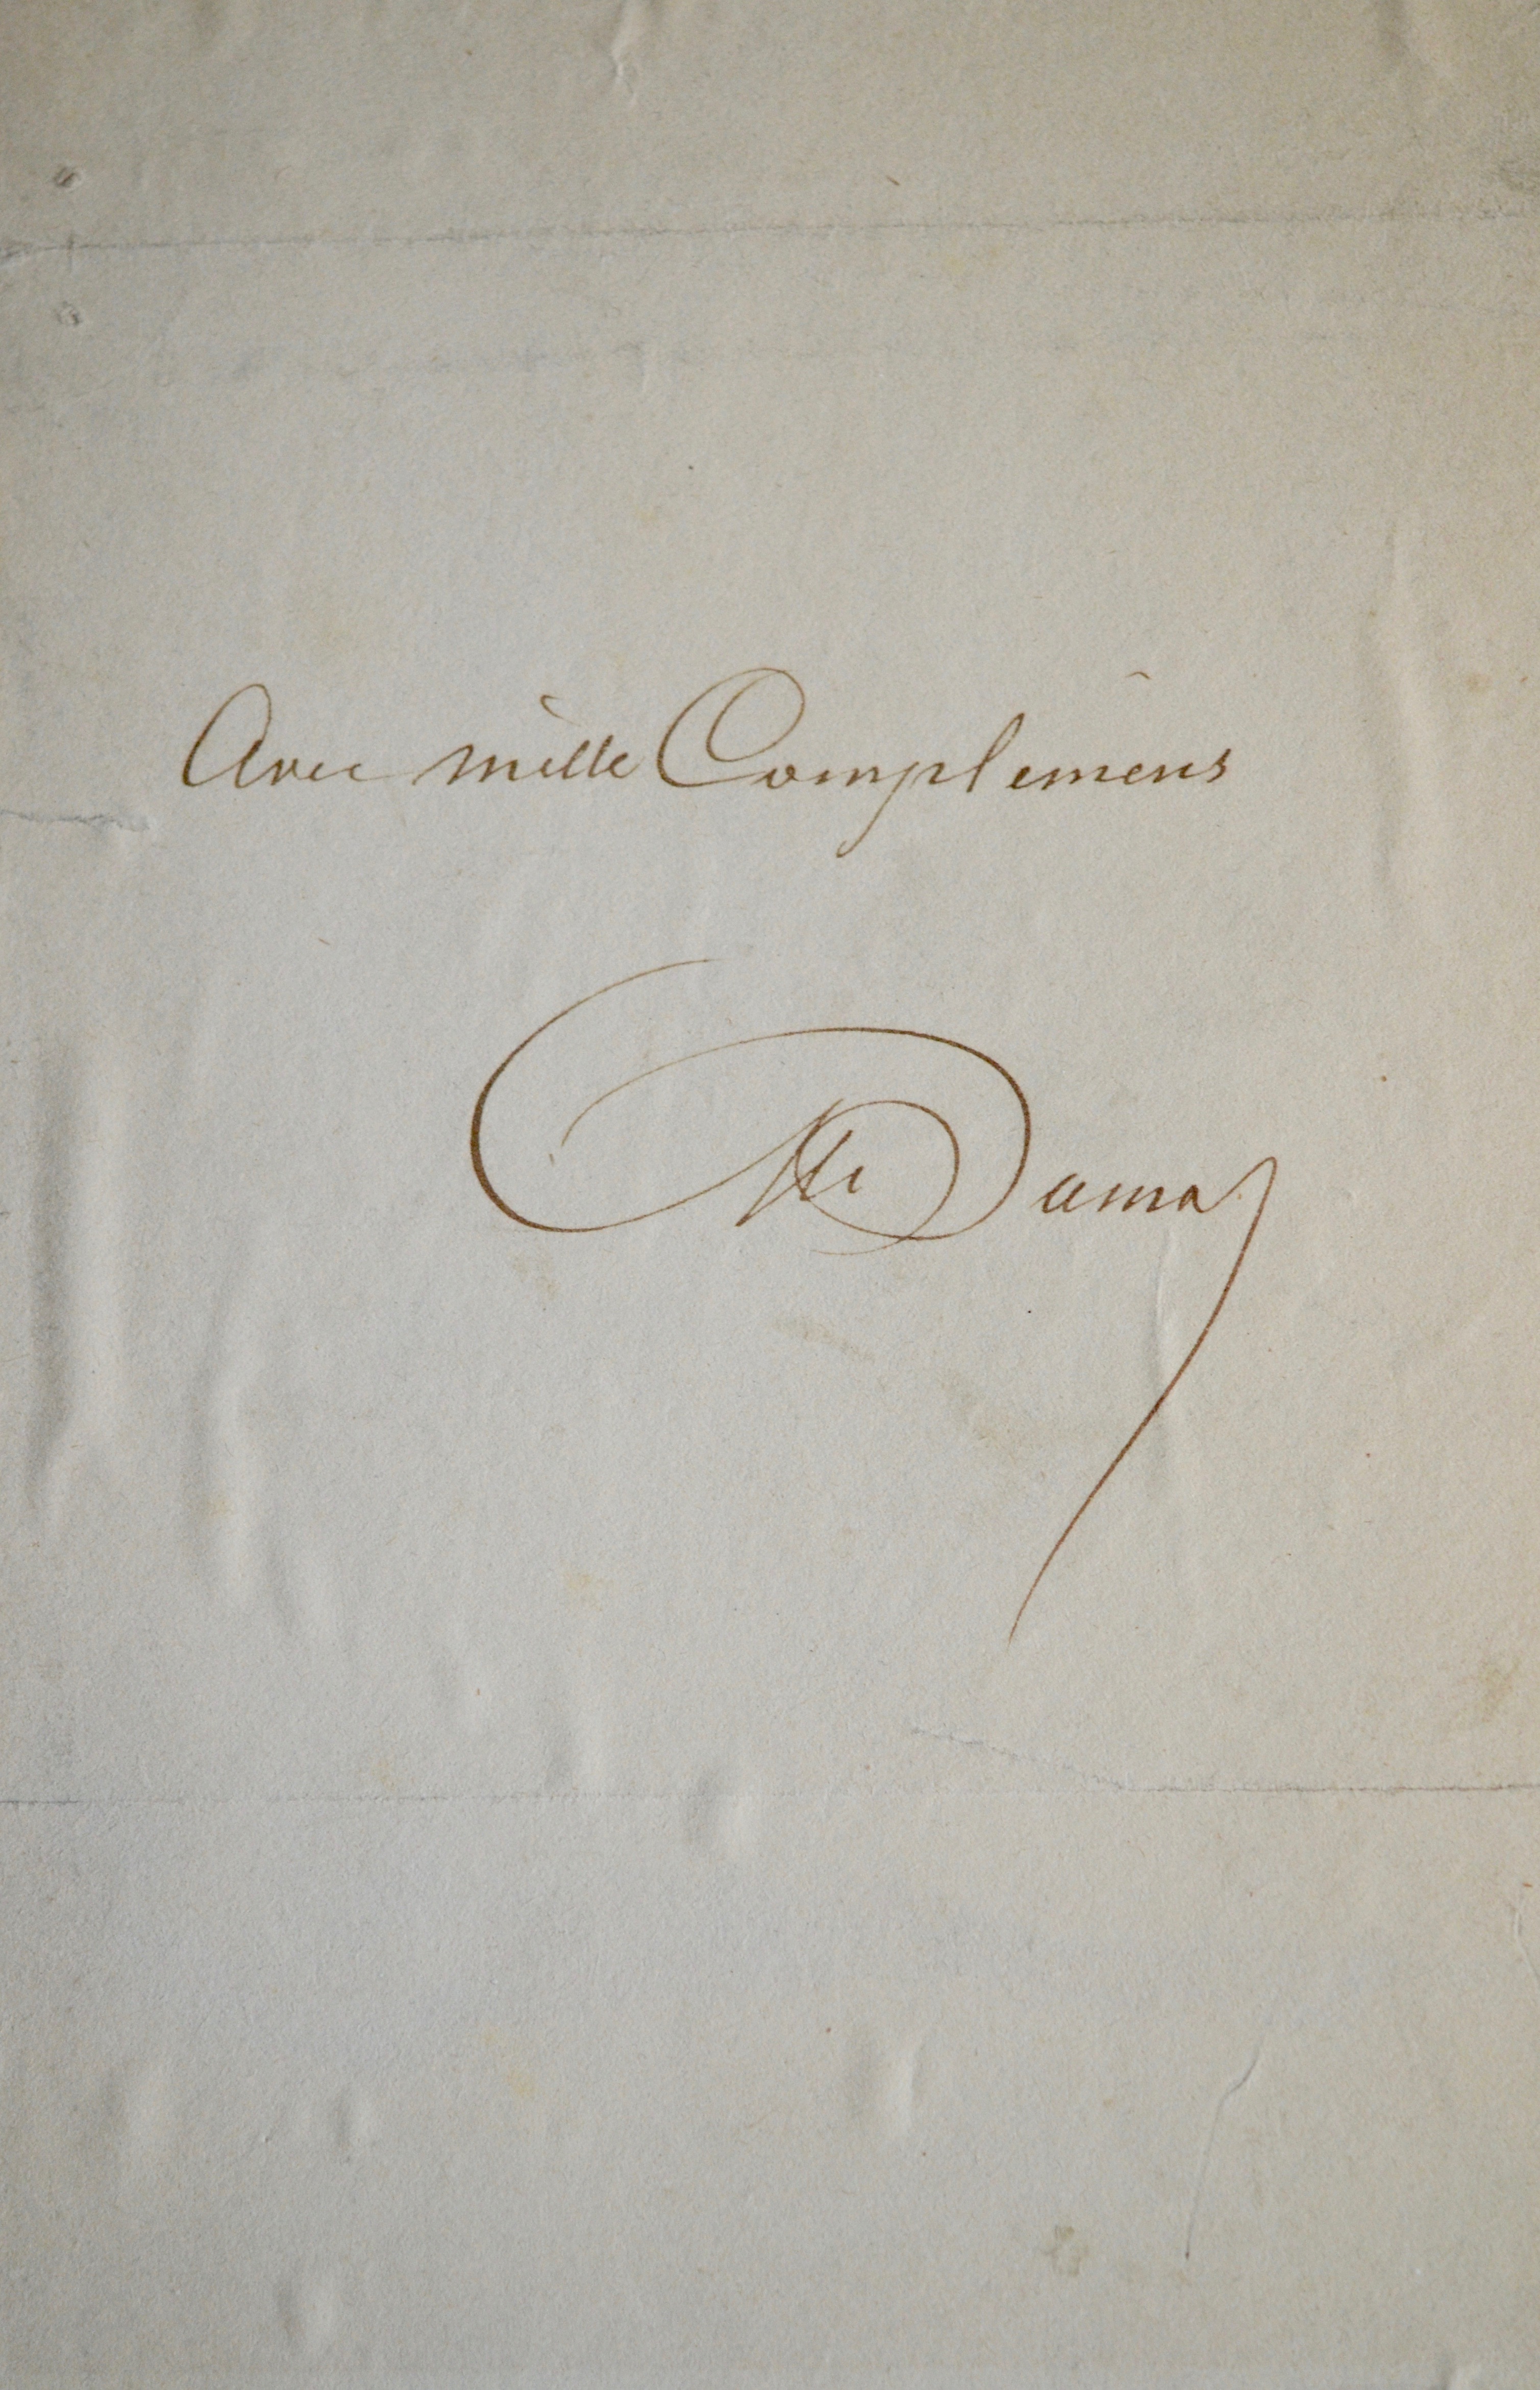 Avec mille Complimens
Al Dumas